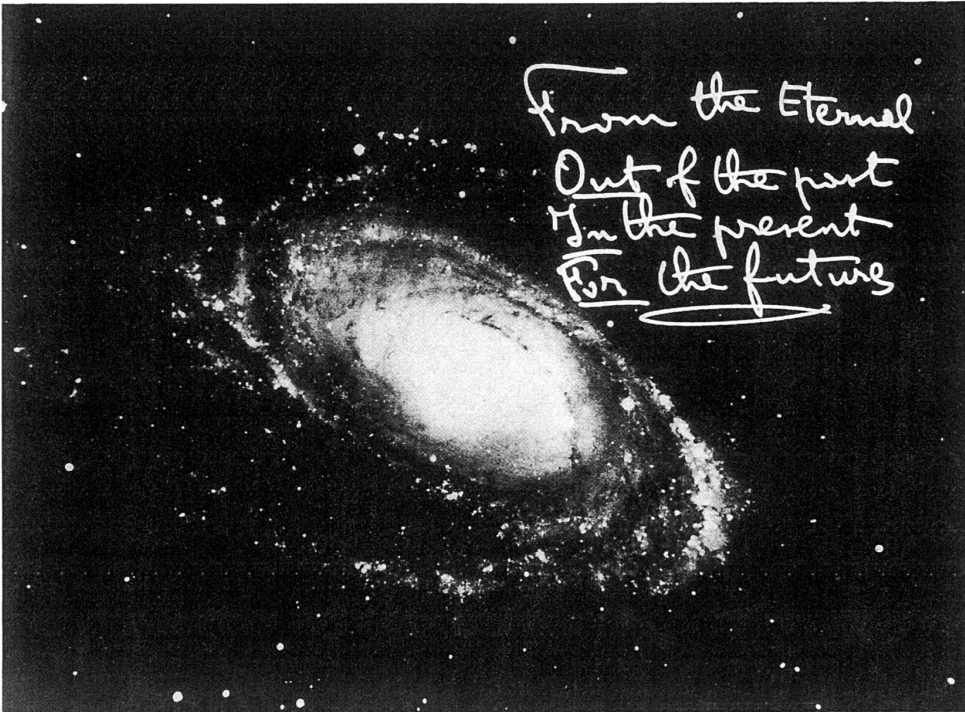 From the Eternal
Out of the past
In the present
For the future